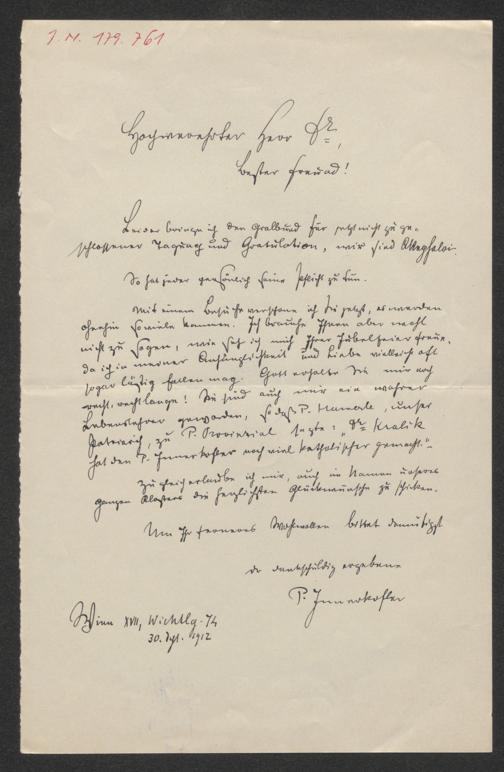 J. N. 179.761
Hochverehrter Herr Dr.,
bester Freund!
Leider bringe ich den Gralbund für jetzt nicht zu ge-
schlossener Tagung und Gratulation, wir sind
So hat jeder persönlich seine Pflicht zu tun.
Mit einem Besuche verschone ich Sie jetzt, es werden
ohnehin so viele kommen. Ich brauche Ihnen aber wohl
nicht zu sagen, wie sehr ich mich Ihrer Jubelfeier freue,
da ich in meiner Anhänglichkeit und Liebe vielleicht oft
sogar lästig fallen mag. Gott erhalte Sie mir noch
recht, recht lange! Sie sind auch mir ein wahrer
Lebenslehrer geworden, so daß P. unser
zu P. Provinzial sagte: „Dr. Kralik
hat den P. Innerkofler noch viel katholischer gemacht."
Zugleich erlaube ich mir, auch im Namen unseres
ganzen Klosters die herzlichsten Glückwünsche zu schicken.
Um Ihr ferneres Wohlwollen bittet demütigst
der dankschuldig ergebene
P. Innerkofler
Wien XVII, Wichtlg. 74
30. Sept. 1912